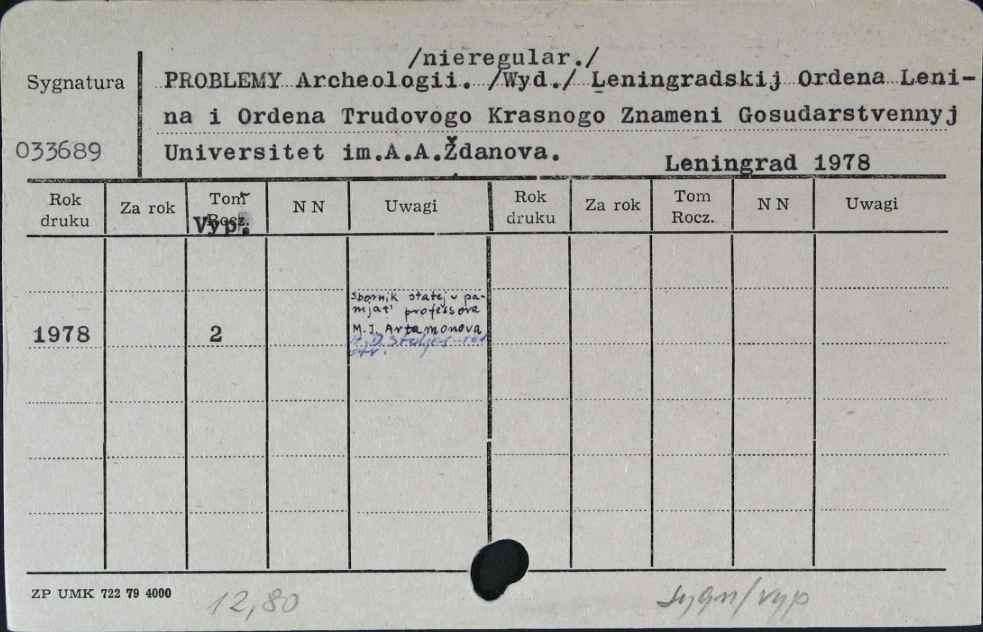 /nieregular./
Sygnatura PROBLEMY Archeologii. /Wyd./ Leningradskij Ordena Leni-
na i Ordena Trudovogo Krasnogo Znameni Gosudarstvennyj
033689 Universitet im.A.A.Ždanova.
Leningrad 1978
Rok druku Za rok Tom Rocz. Vyp. NN Uwagi Rok druku Za rok Tom Rocz. NN Uwagi
Sbornik statej v pa-
mjat' professora
1978 2 M.I. Artamonova
str.
ZP UMK 722 79 4000 12,80 sygn/vyp